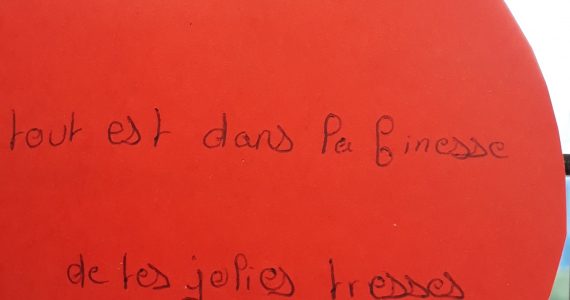 tout est dans la finesse
de tes jolies tresses